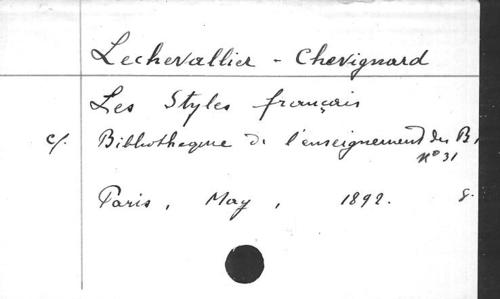 Lechevallier - Chevignard
Les Styles français
cf. Bibliotheque de l'enseignement des B.
N° 31
Paris, May, 1892. 8.